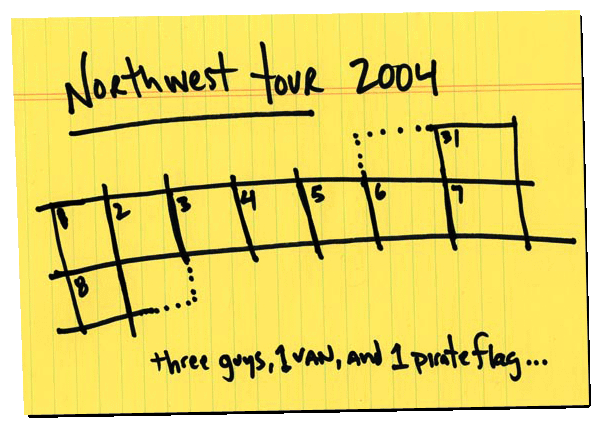 Northwest tour 2004
31
1 2 3 4 5 6 7
8
three guys, 1 van, and 1 pirate flag...